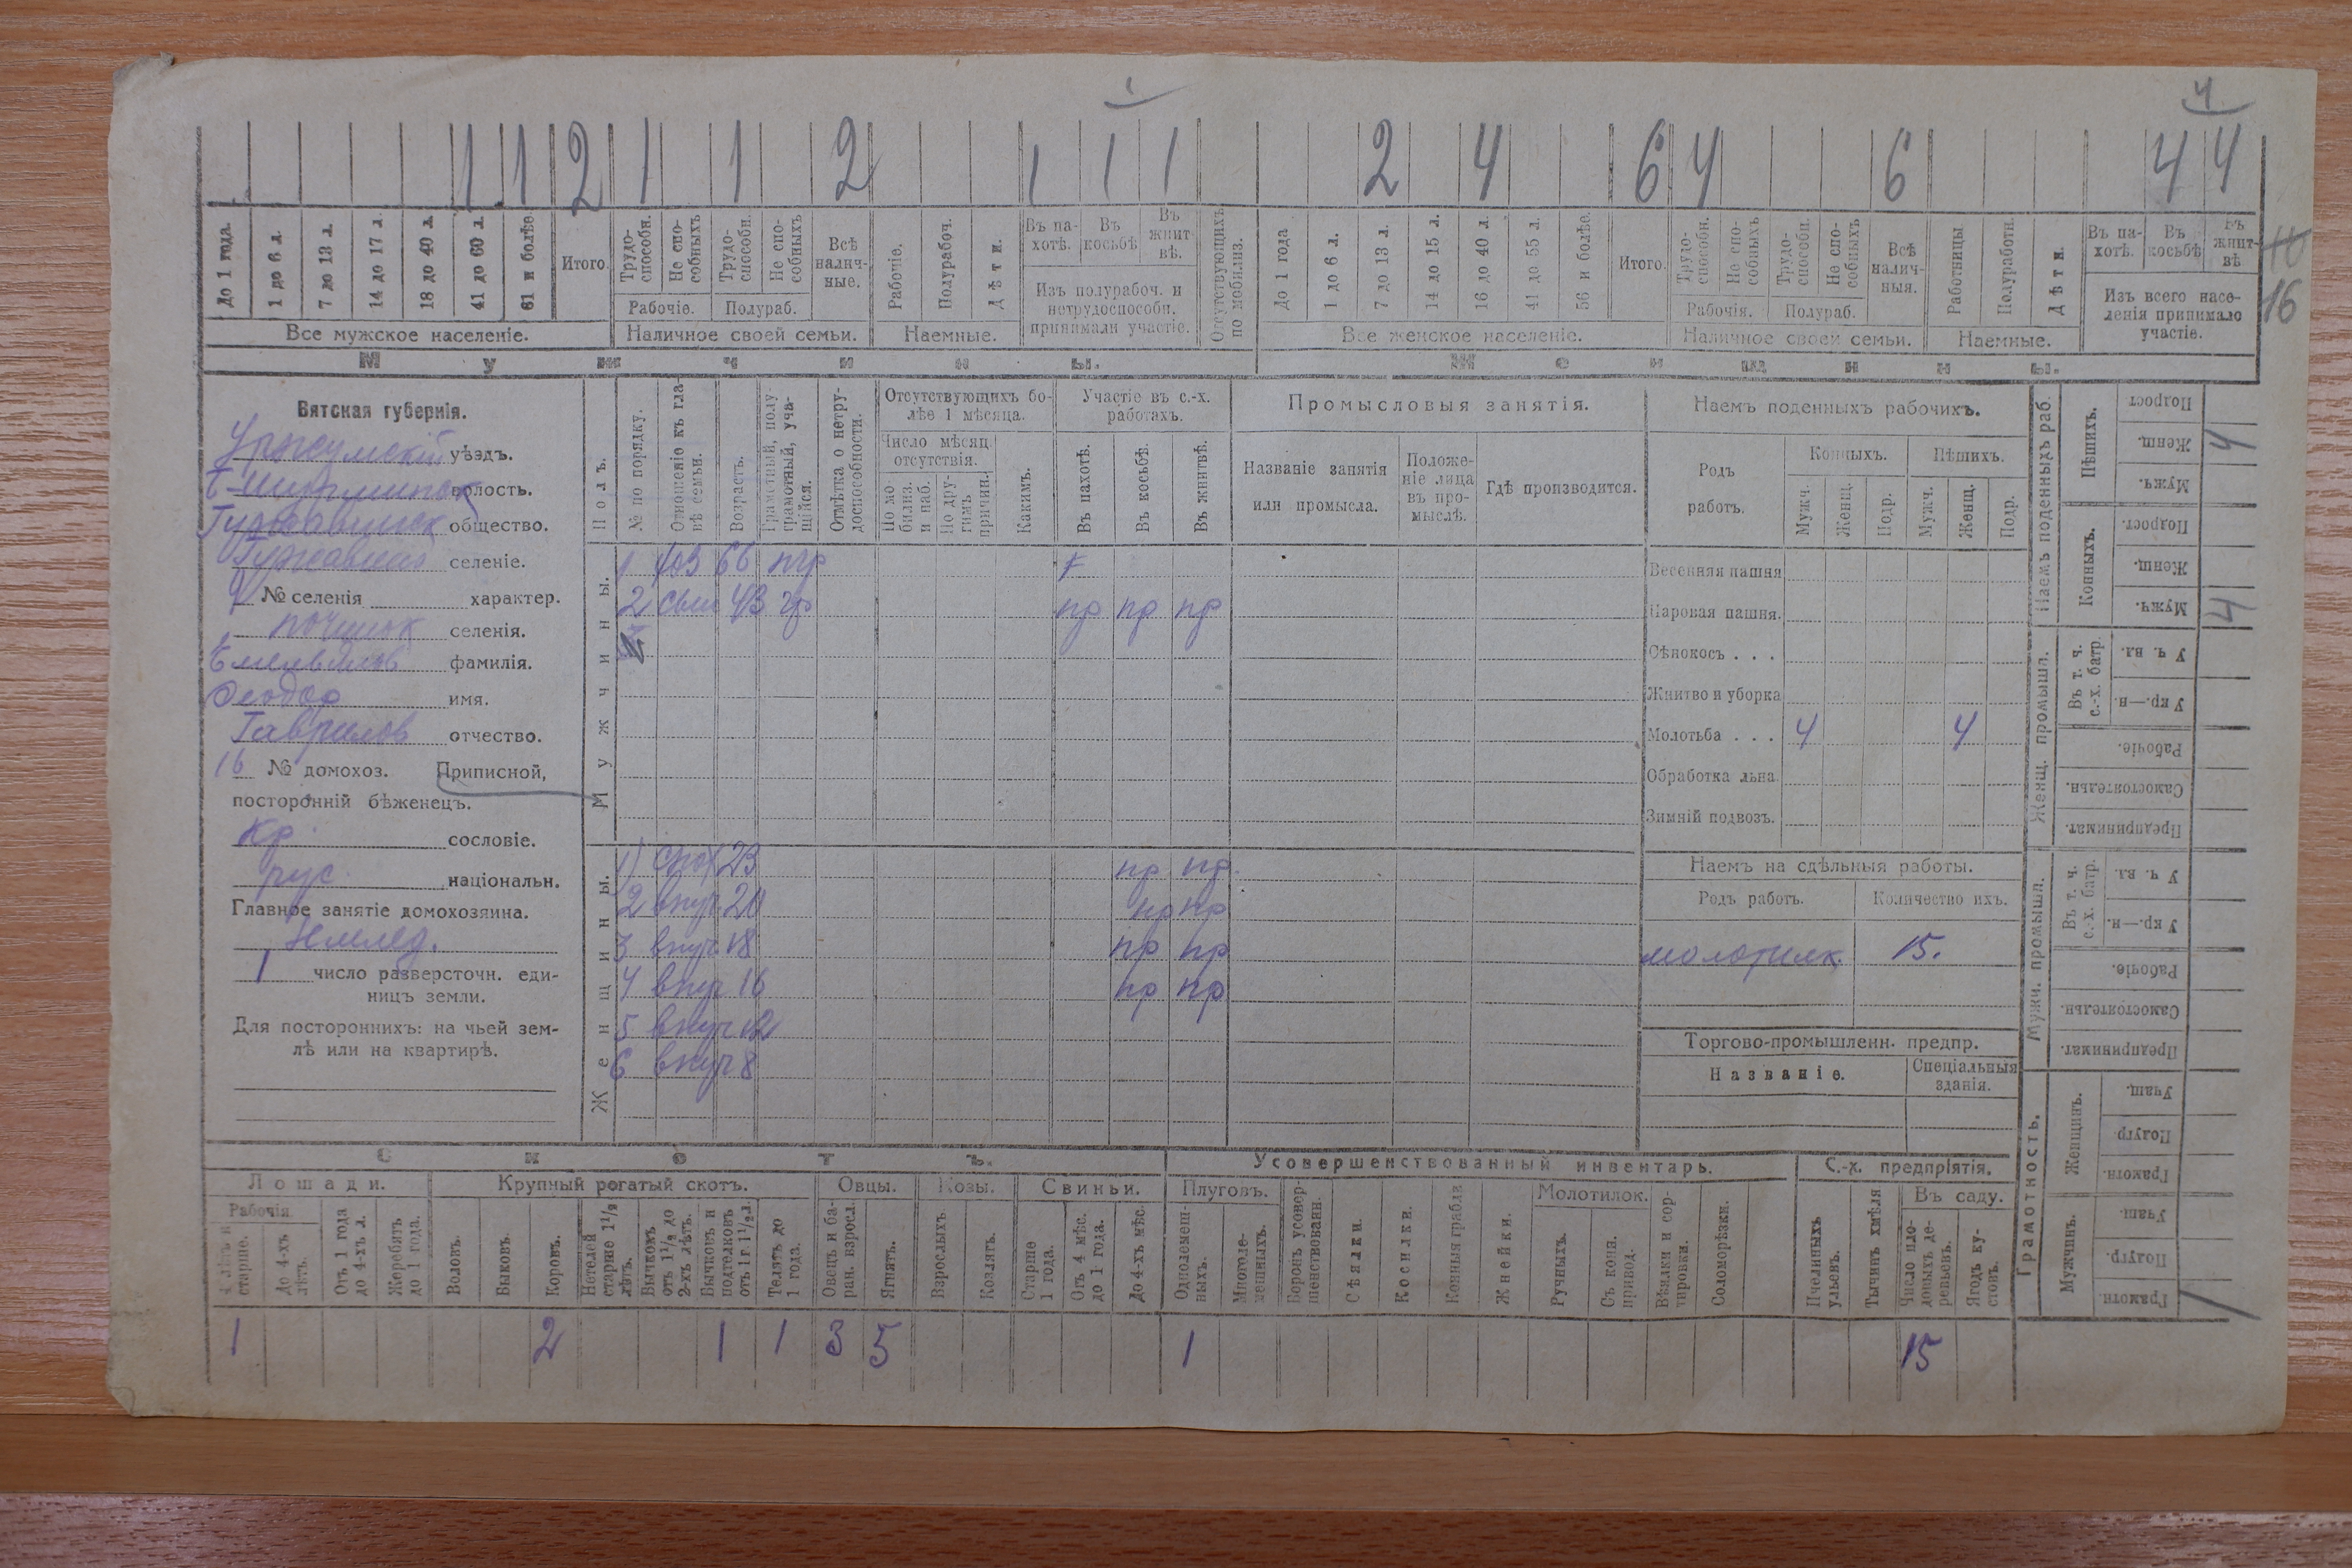 1
4
1 1 2 1 1 2 1 1 1 2 4 6 4 6 4 4
До 1 года.
1 до 6 л.
7 до 13 л.
14 до 17 л.
18 до 40 л.
41 до 60 л.
61 и болѣе
Итого.
Трудоспособн.
Не способныхъ
Трудоспособн.
Не способныхъ
Всѣ наличные.
Рабочіе.
Полурабоч.
Дѣти.
Въ пахотѣ.
Въ косьбѣ
Въ жнитвѣ.
Отсутствующихъ по мобилиз.
До 1 года
1 до 6 л.
7 до 13 л.
14 до 15 л.
16 до 40 л.
41 до 55 л.
56 и болѣе.
Итого.
Трудоспособн.
Не способныхъ
Трудоспособн.
Не способныхъ
Всѣ наличныя.
Работницы
Полуработн.
Дѣти.
Въ пахотѣ.
Въ косьбѣ
Въ жнитвѣ
16
Рабочіе. Полураб.
Изъ полурабоч. и нетрудоспособн. принимали участіе.
Рабочія. Полураб.
Изъ всего населенія принимало участіе.
Все мужское населеніе. Наличное своей семьи. Наемные. Все женское населеніе. Наличное своей семьи. Наемные.
Мужчины. Женщины.
Вятская губернія.
Уржумскій уѣздъ.
волость.
общество.
селеніе.
№ селенія характер.
починок селенія.
Емельянов фамилія.
Феодор имя.
Гаврилов отчество.
16 № домохоз. Приписной,
посторонній бѣженецъ.
кр. сословіе.
рус. національн.
Главное занятіе домохозяина.
Землед.
1 число разверсточн. единицъ земли.
Для постороннихъ: на чьей землѣ или на квартирѣ.
Полъ.
№ по порядку.
Отношеніе къ главѣ семьи.
Возрастъ.
Грамотный, полуграмотный, учащійся.
Отмѣтка о нетрудоспособности.
Отсутствующихъ болѣе 1 мѣсяца.
Число мѣсяц. отсутствія.
По мобилиз. и наб.
По другимъ причин.
Какимъ.
Участіе въ с.-х. работахъ.
Въ пахотѣ.
Въ косьбѣ.
Въ жнитвѣ.
Промысловыя занятія.
Названіе занятія или промысла.
Положеніе лица въ промыслѣ.
Гдѣ производится.
Мужчины.
1 хоз 66 пгр
2 сын 43 гр пр пр пр
Женщины.
1) снох 23 пр пр.
2 внуч 20 пр пр
3 внуч 18 пр пр
4 внуч 16 пр пр
5 внуч 12
6 внуч 8
Наемъ поденныхъ рабочихъ.
Родъ работъ.
Конныхъ. Пѣшихъ.
Мужч. Женщ. Подр. Мужч. Женщ. Подр.
Весенняя пашня
Паровая пашня.
Сѣнокосъ . . .
Жнитво и уборка
Молотьба . . . 4 4
Обработка льна.
Зимній подвозъ.
Наемъ на сдѣльныя работы.
Родъ работъ. Количество ихъ.
молотилк. 15.
Торгово-промышленн. предпр.
Названіе. Спеціальныя зданія.
Наемъ поденныхъ раб.
Пѣшихъ.
Подрост
Женщ. 4
Мужч.
Конныхъ.
Подрост.
Женщ.
Мужч. 4
Женщ. промышл.
Въ т. ч. с.-х. батр.
У ч. вл.
У кр.—н.
Рабочіе.
Самостоятельн.
Предпринимат.
Мужч. промышл.
Въ т. ч. с.-х. батр.
У ч. вл.
У кр.—н.
Рабочіе.
Самостоятельн.
Предпринимат.
Грамотность.
Женщинъ.
Учащ.
Полугр.
Грамотн.
Мужчинъ.
Учащ.
Полугр.
Грамотн. 1
Скотъ.
Лошади. Крупный рогатый скотъ. Овцы. Козы. Свиньи.
Рабочія
4 лѣтъ и старше.
До 4-хъ лѣтъ.
Отъ 1 года до 4-хъ л.
Жеребятъ до 1 года.
Воловъ.
Быковъ.
Коровъ.
Нетелей старше 1½ лѣтъ.
Бычковъ отъ 1½ до 2-хъ лѣтъ.
Бычковъ и подтелковъ отъ 1 г. 1½ л.
Телятъ до 1 года.
Овецъ и баран. взросл.
Ягнятъ.
Взрослыхъ
Козлятъ.
Старше 1 года.
Отъ 4 мѣс. до 1 года.
До 4-хъ мѣс.
Усовершенствованный инвентарь.
Плуговъ.
Однолемешныхъ.
Многолемешныхъ.
Боронъ усовершенствованн.
Сѣялки.
Косилки.
Конныя грабли
Жнейки.
Молотилок.
Ручныхъ.
Съ конн. привод.
Вѣялки и сортировки.
Соломорѣзки.
С.-х. предпріятія.
Пчелиныхъ ульевъ.
Тычинъ хмѣля
Въ саду.
Число плодовыхъ деревьевъ.
Ягодъ кустовъ.
1 2 1 1 3 5 1 15